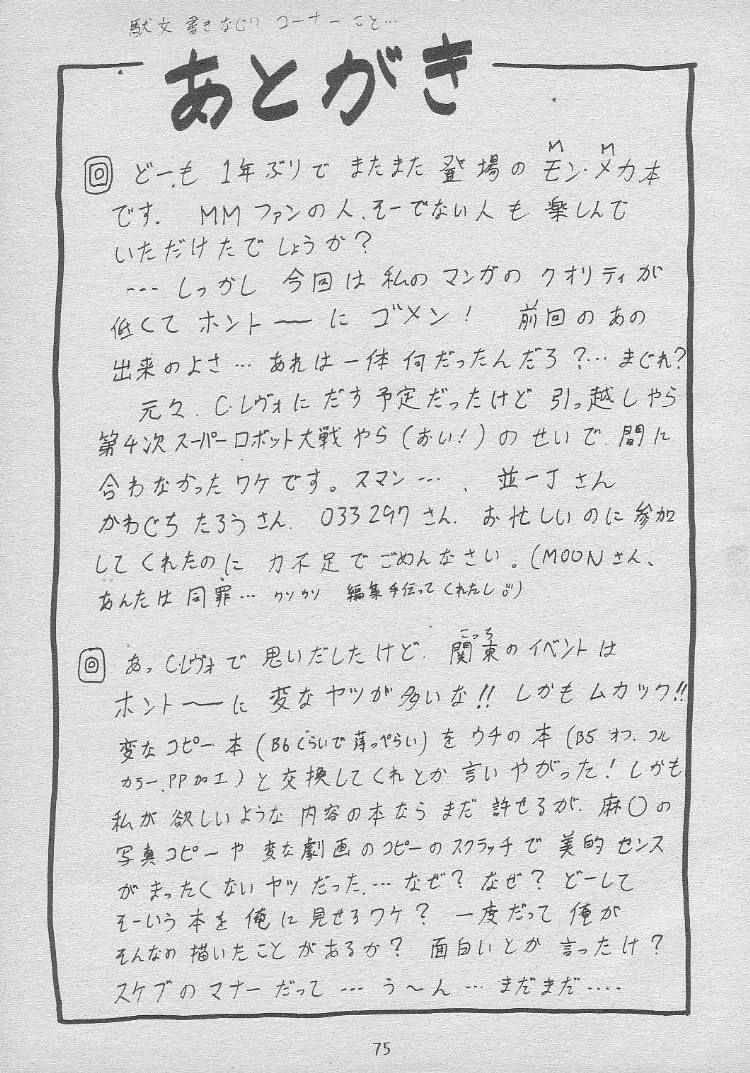 駄文書きなじりコーナーこと…
あとがき
どーも 1年ぶりで またまた 登場の モン・メカ本
M M
です. MMファンの人、そーでない人も 楽しんで
いただけたでしょうか?
--- しっかし 今回は 私の マンガの クオリティが
低くて ホントーに ゴメン! 前回の あの
出来のよさ… あれは一体 何だったんだろ?… まぐれ?
元々、C・レヴォに だす 予定だったけど 引っ越しやら
第4次 スーパーロボット大戦 やら (おい!) のせいで 間に
合わなかった ワケです。スマン…、並一丁さん
かわぐち たろうさん、033297さん、お忙しいのに参加
してくれたのに 力不足で ごめんなさい。(MOONさん、
あんたは 同罪… クソクソ 編集手伝って くれたし。)
あっ C・レヴォで 思いだしたけど、関東の イベントは
こっち
ホントーに 変なヤツが 多いな!! しかも ムカック!!
変な コピー本 (B6くらいで 薄っぺらい) を ウチの 本 (B5 オフ、フル
カラー、PP加工) と 交換してくれ とか 言いやがった! しかも
私が 欲しいような 内容の本なら まだ 許せるが、麻〇の
写真コピーや 変な劇画の コピーの スクラッチで 美的 センス
が まったくない ヤツだった… なぜ? なぜ? どーして
そーいう 本を 俺に 見せるワケ? 一度だって 俺が
そんなの 描いたことが あるか? 面白いとか 言ったけ?
スケブの マナーだって … う〜ん … まだまだ ....
75